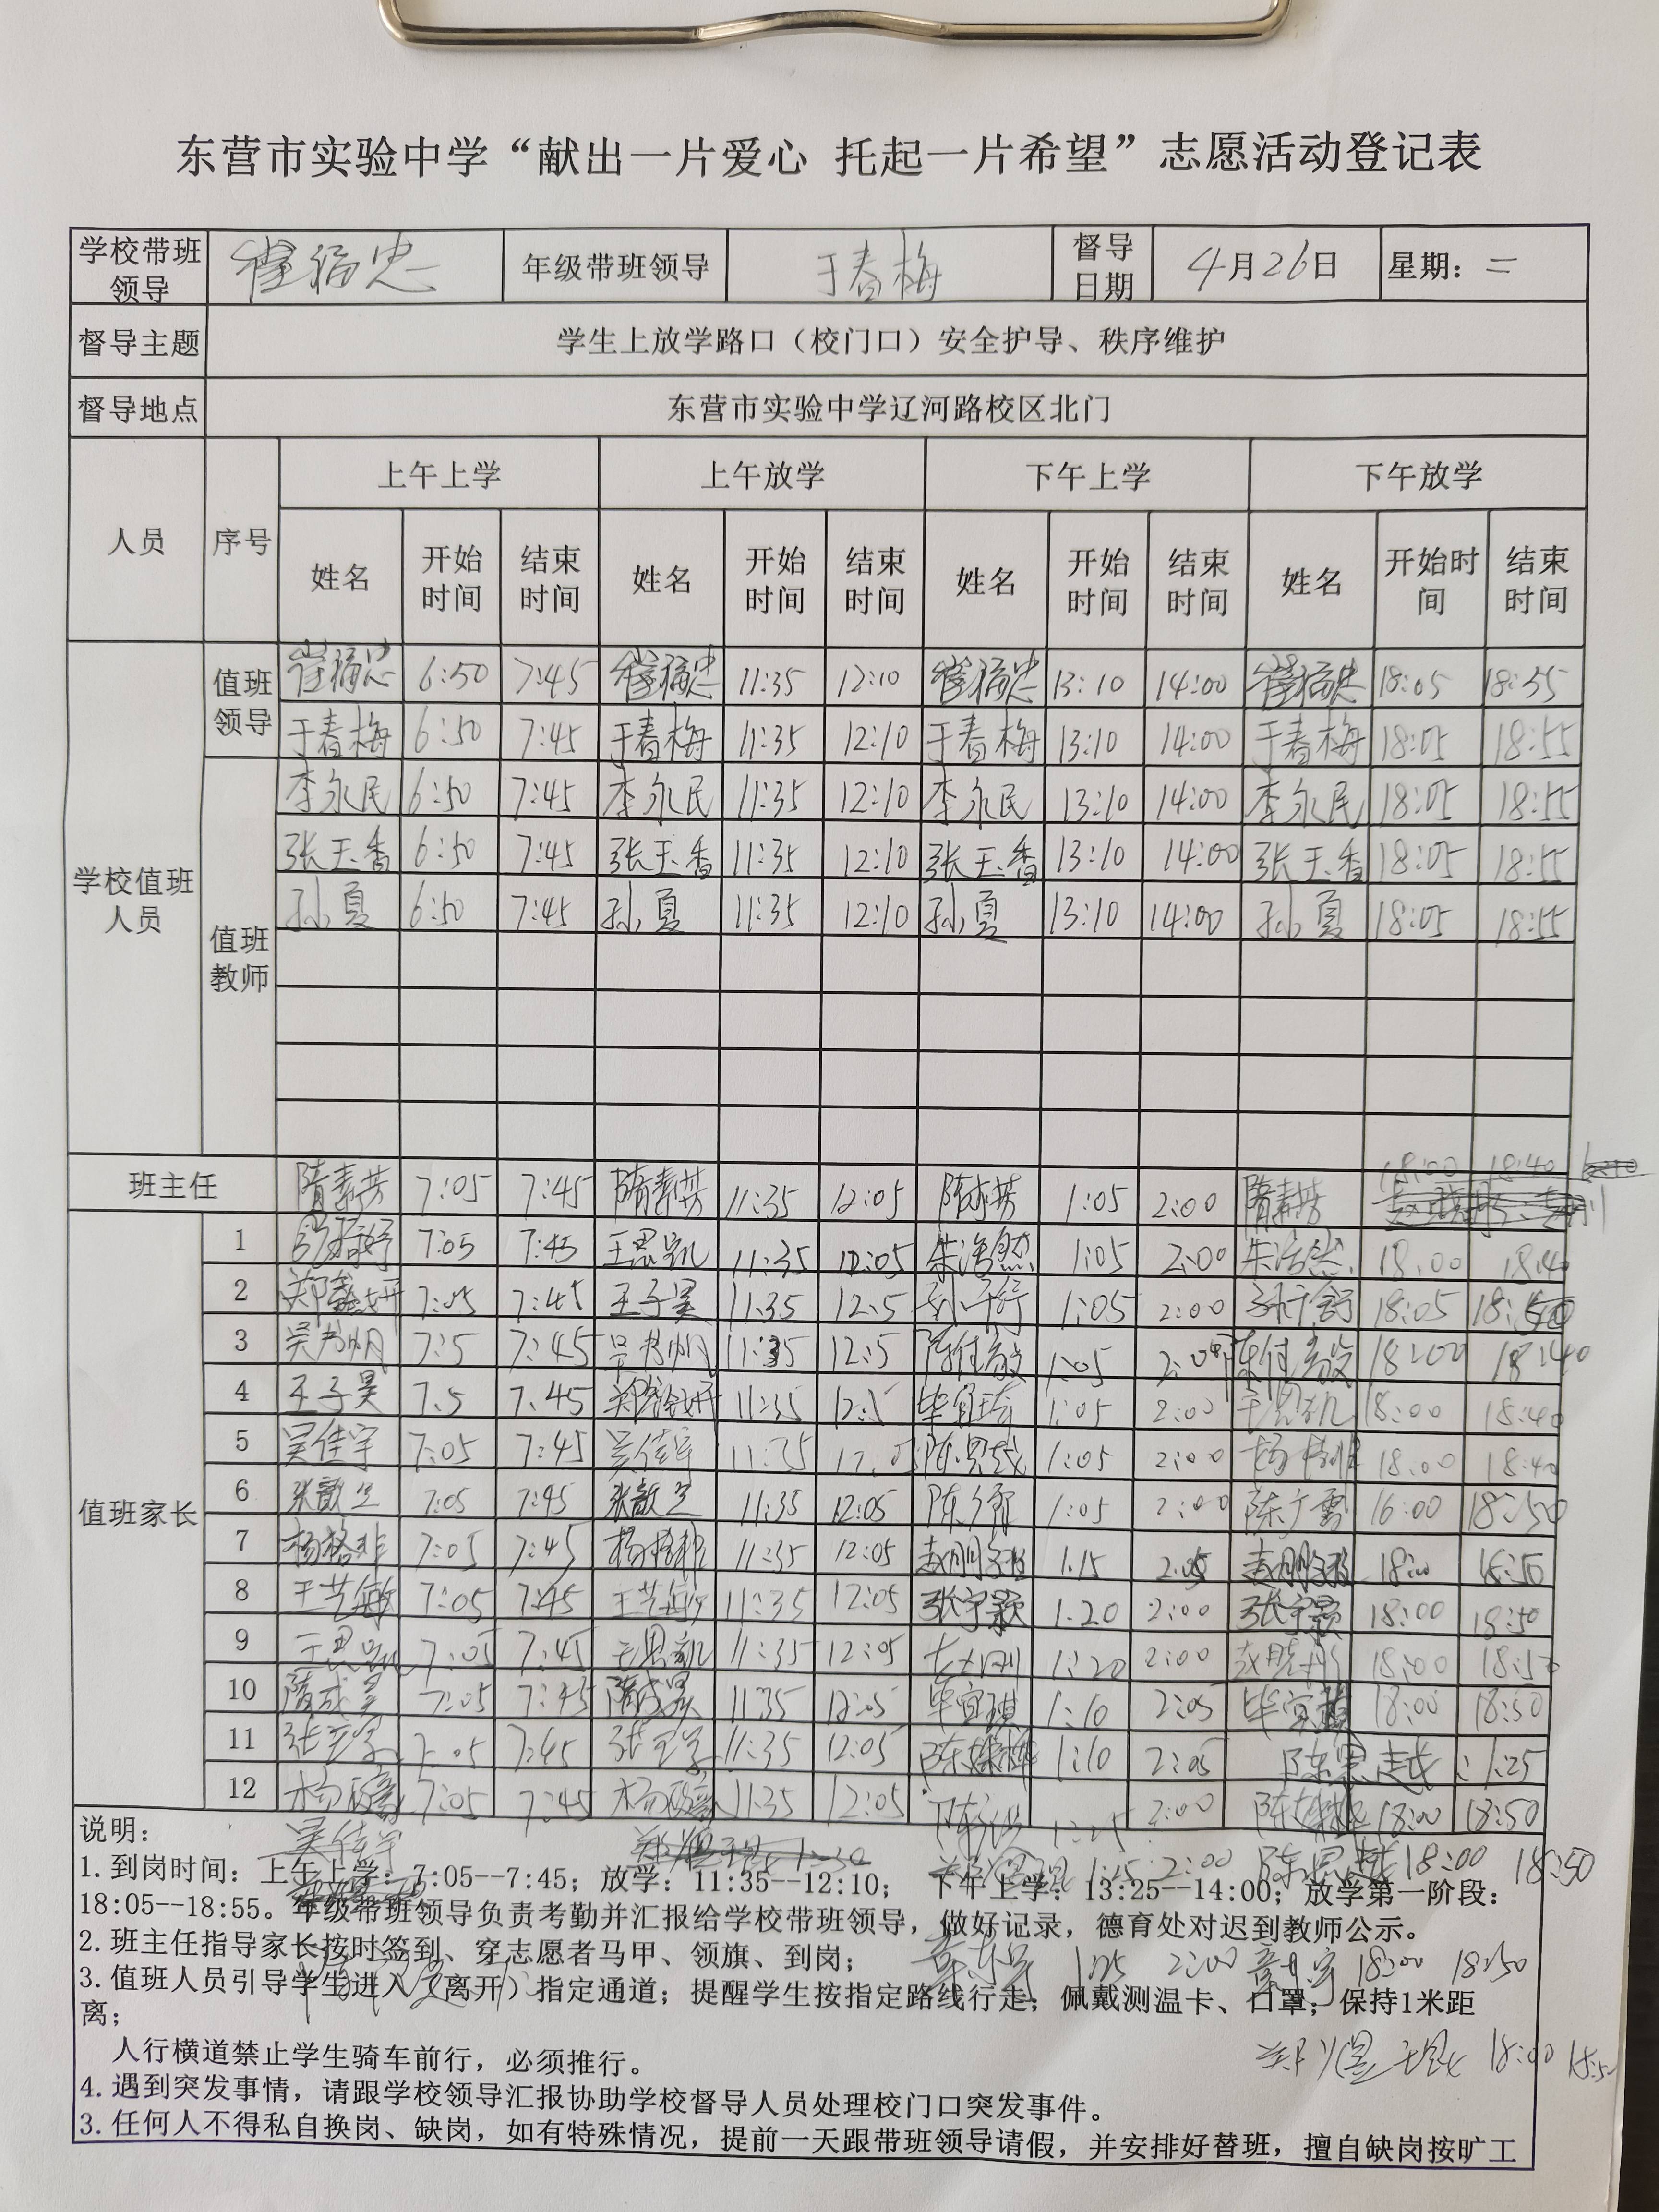 东营市实验中学“献出一片爱心 托起一片希望”志愿活动登记表
学校带班领导 崔福忠 年级带班领导 于春梅 督导日期 4月26日 星期：二
督导主题 学生上放学路口（校门口）安全护导、秩序维护
督导地点 东营市实验中学辽河路校区北门
人员 序号 上午上学 上午放学 下午上学 下午放学
姓名 开始时间 结束时间 姓名 开始时间 结束时间 姓名 开始时间 结束时间 姓名 开始时间 结束时间
学校值班人员
值班领导
崔福忠 6:50 7:45 崔福忠 11:35 12:10 崔福忠 13:10 14:00 崔福忠 18:05 18:55
于春梅 6:50 7:45 于春梅 11:35 12:10 于春梅 13:10 14:00 于春梅 18:05 18:55
值班教师
李永民 6:50 7:45 李永民 11:35 12:10 李永民 13:10 14:00 李永民 18:05 18:55
张玉香 6:50 7:45 张玉香 11:35 12:10 张玉香 13:10 14:00 张玉香 18:05 18:55
孙夏 6:50 7:45 孙夏 11:35 12:10 孙夏 13:10 14:00 孙夏 18:05 18:55
班主任 隋素芳 7:05 7:45 隋素芳 11:35 12:05 隋素芳 1:05 2:00 隋素芳 18:00 18:40
值班家长
1 7:05 7:45 王思凯 11:35 12:05 朱浩然 1:05 2:00 朱浩然 18:00 18:40
2 7:05 7:45 王子昊 11:35 12:5 1:05 2:00 18:05
3 吴书帆 7:5 7:45 吴书帆 11:35 12:5 陈佳毅 1:05 2:00 陈佳毅 18:00 18:40
4 王子昊 7.5 7.45 11:35 12:5 1:05 2:00 18:00 18:40
5 吴佳宇 7:05 7:45 吴佳宇 11:35 陈思越 1:05 2:00 18:00 18:40
6 7:05 7:45 11:35 12:05 1:05 2:00 16:00 18:50
7 杨格非 7:05 7:45 杨格非 11:35 12:05 1.15 2:05 18:50
8 王艺敏 7:05 7:45 王艺敏 11:35 12:05 张宇颢 1.20 2:00 张宇颢 18:00 18:50
9 王思凯 7:05 7:45 王思凯 11:35 12:05 1:20 2:00 18:00 18:50
10 隋成昊 7:05 7:45 隋成昊 11:35 12:05 毕宜琪 1:10 2:05 毕宜琪 18:00 18:50
11 7:05 7:45 11:35 12:05 1:10 2:05 陈思越 1:25
12 7:05 7:45 11:35 12:05 2:00 18:00 18:50
说明：
吴佳宇 1:15 2:00 陈思越 18:00 18:50
1.到岗时间：上午上学：7:05--7:45；放学：11:35--12:10； 下午上学：13:25--14:00；放学第一阶段：
18:05--18:55。年级带班领导负责考勤并汇报给学校带班领导，做好记录，德育处对迟到教师公示。
2.班主任指导家长按时签到、穿志愿者马甲、领旗、到岗；
2:00 18:00 18:50
3.值班人员引导学生进入（离开）指定通道；提醒学生按指定路线行走；佩戴测温卡、口罩；保持1米距
离；
人行横道禁止学生骑车前行，必须推行。
18:00
4.遇到突发事情，请跟学校领导汇报协助学校督导人员处理校门口突发事件。
3.任何人不得私自换岗、缺岗，如有特殊情况，提前一天跟带班领导请假，并安排好替班，擅自缺岗按旷工